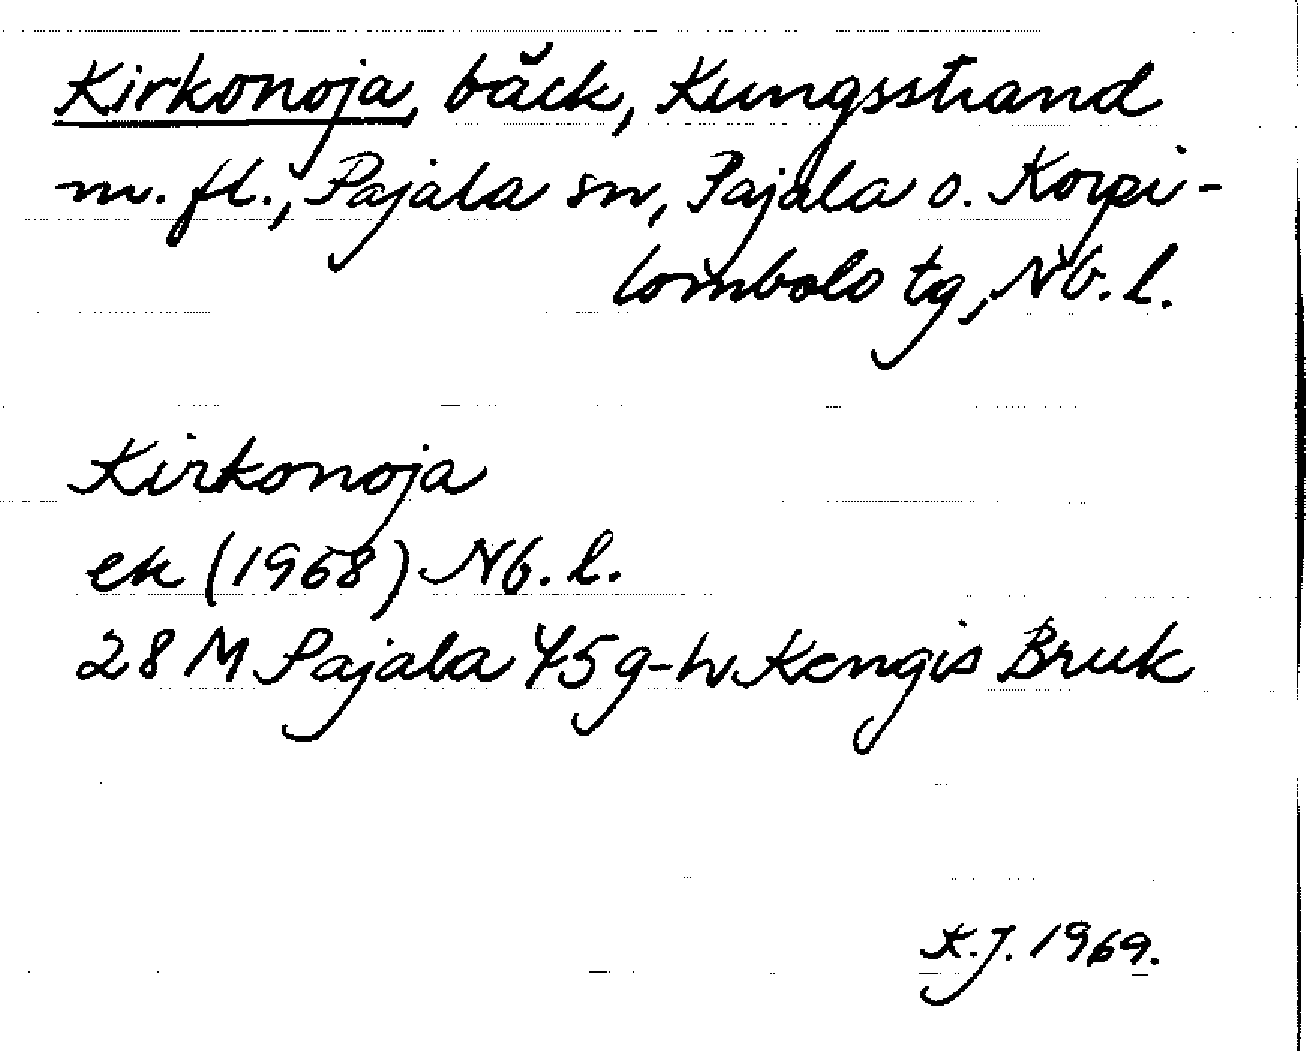 Kirkonoja, bäck, Kungsstrand
m. fl., Pajala sn, Pajala o. Korpi-
lombolo tg, Nb. l.
Kirkonoja
ek (1968) Nb. l.
28 M Pajala 45 g-h Kengis Bruk
K.J. 1969.